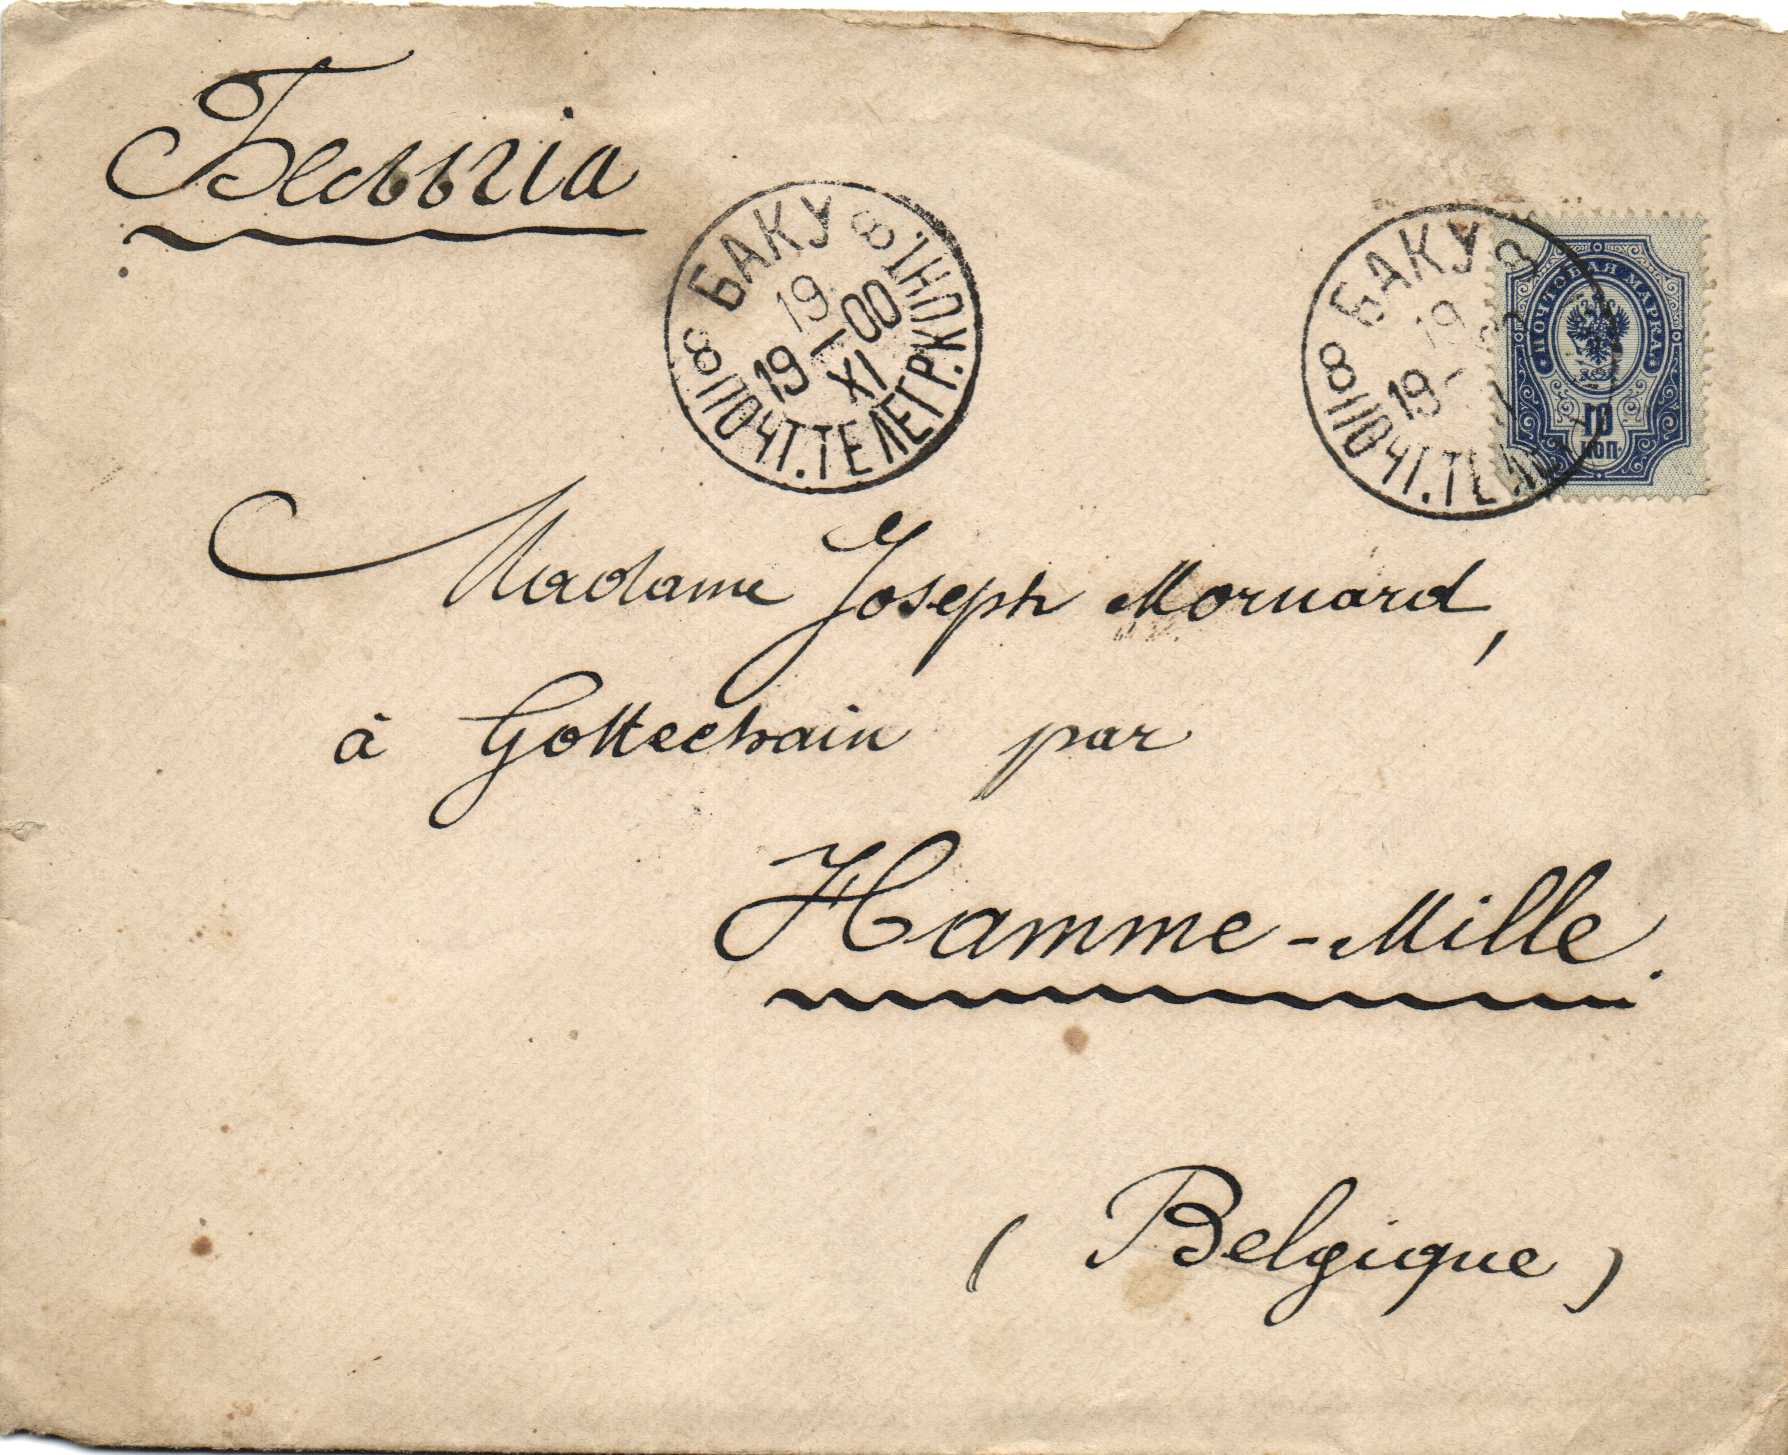 Бельгія
БАКУ
19
19 – 00
XI
ПОЧТ.ТЕЛЕГР.КОНТ.
БАКУ
19
19
ПОЧТ.ТЕЛ
ПОЧТОВАЯ МАРКА
10
КОП.
Madame Joseph Mornard,
à Gottechain par
Hamme-Mille.
(Belgique)